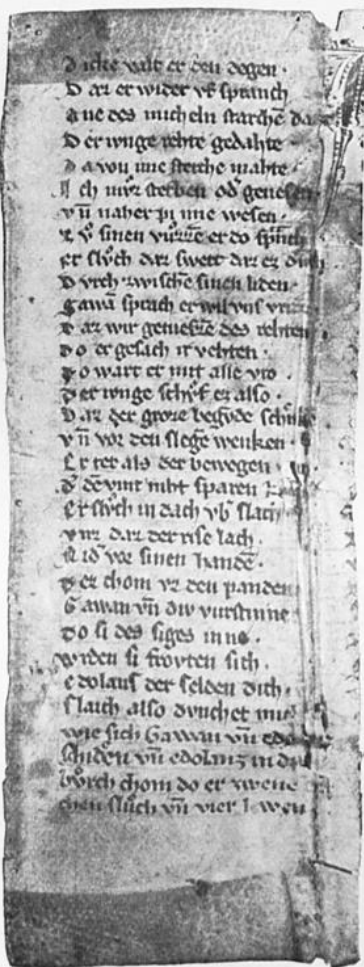 Dicke valt er den degen ·
D az er wider vf spranch
A ne des micheln starche da
D er ivnge rehte gedahte ·
D a von me sterche mahte ·
I ch mvz sterben od genesen
vn naher pi me wesen ·
z v sinen vvzze er do sprch
Er slvch daz swert daz er
D vrch zwische sinen liden ·
Gawa sprach er wil vns
D az wir genieze des rehten
D o er gesach ir vehten ·
D o wart er mit alle vro ·
D er ivnge schvf ez also ·
D az der groze begvde
v n vor den slege wenken ·
Er tet als der bewegen
D de vint niht sparen
Er slvch in dach vb slach
vnz daz der rise lach ·
N id vor sinen hande ·
D er chom vz den panden
Gawan vn div vurstinne
D o si des siges inne ·
wrden si frovten sich ·
edolanz der selden dich ·
slach also dvnchet mich
wie sich Gawan vn
schiden vn edolanz in
bvrch chom do er zwene
chen slvch vn vier lewen